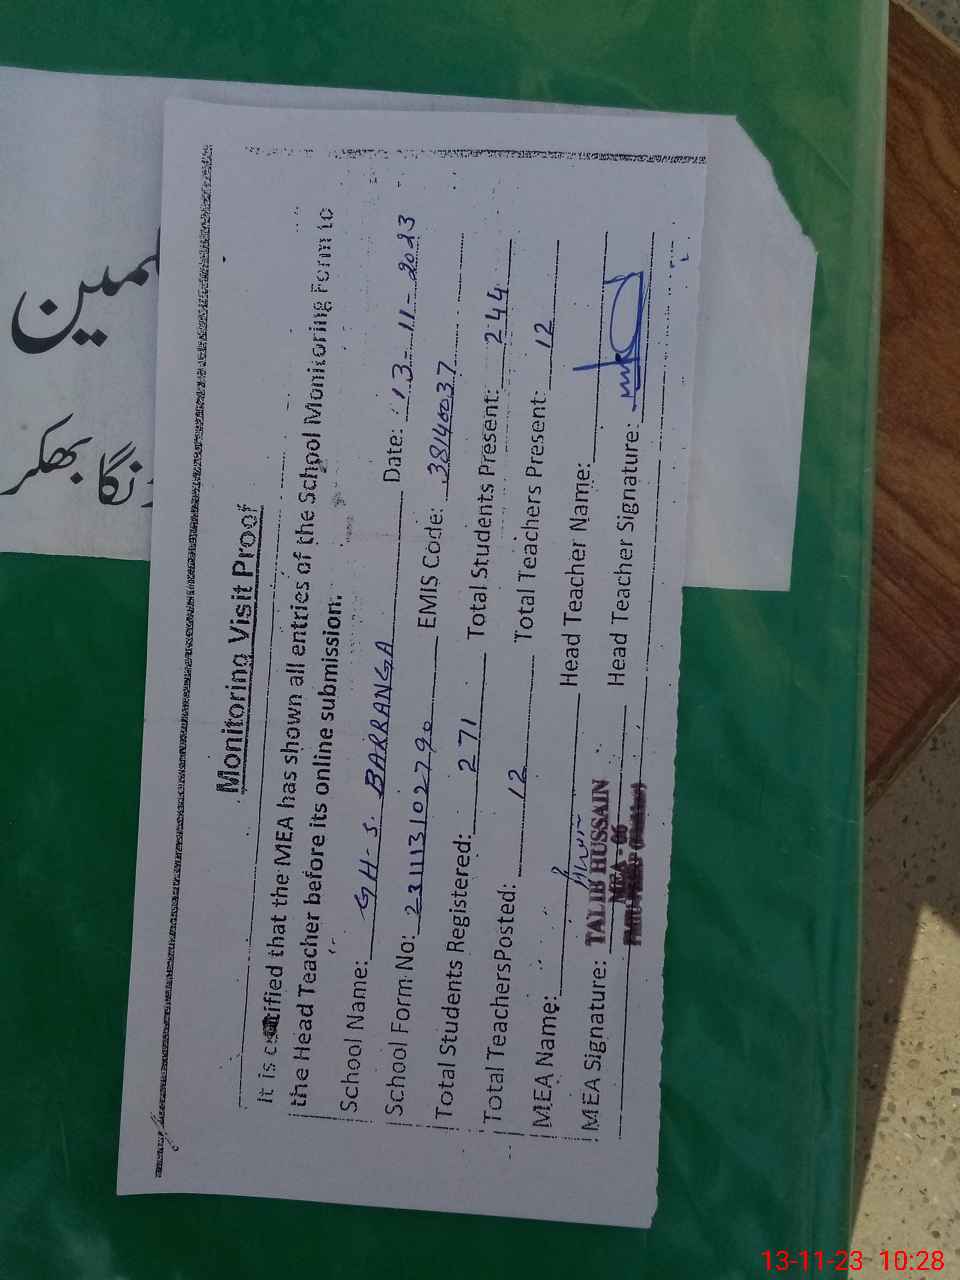 Monitoring Visit Proof
It is certified that the MEA has shown all entries of the School Monitoring Form to
the Head Teacher before its online submission.
School Name: GH-S. BARRANGA Date: 13-11-2023
School Form No: 23111310279０ EMIS Code: 38140037
Total Students Registered: 271 Total Students Present: 244
Total TeachersPosted: 12 Total Teachers Present: 12
MEA Name: Head Teacher Name:
MEA Signature: TALIB HUSSAIN Head Teacher Signature:
MEA - 06
بھکر
13-11-23 10:28